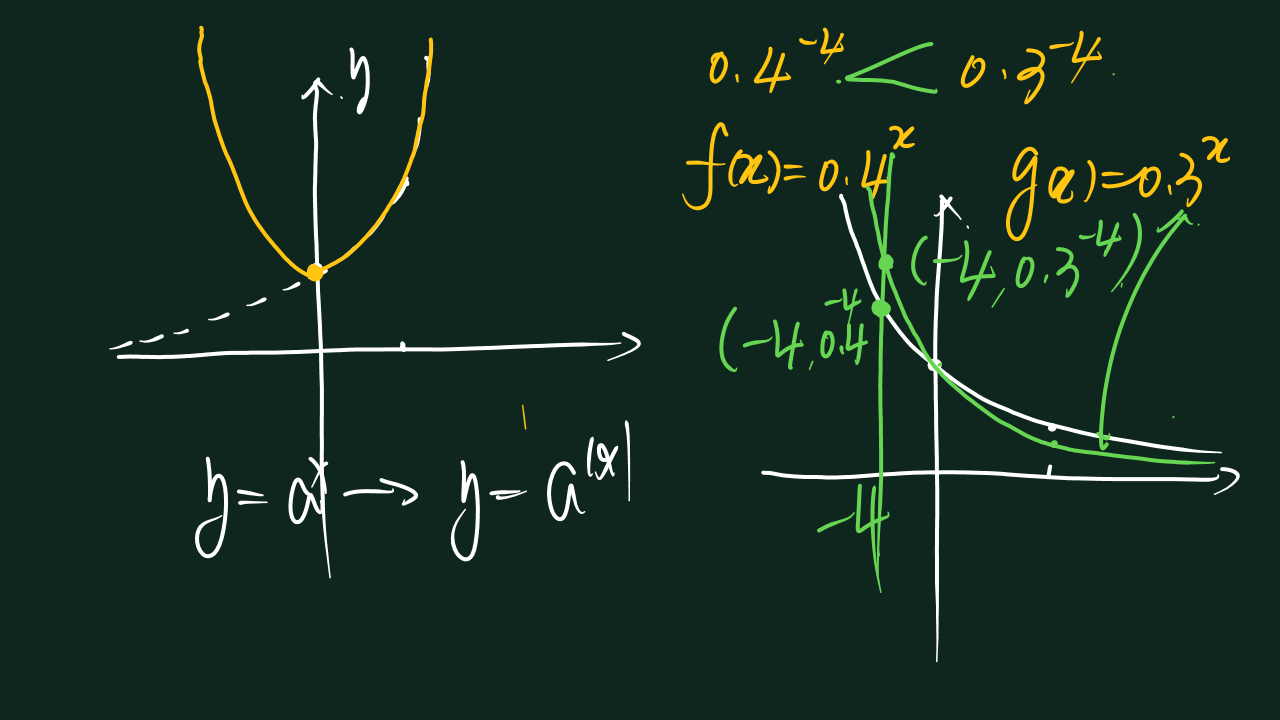 y
y = aˣ → y = a^|x|
0.4⁻⁴ < 0.3⁻⁴
f(x) = 0.4ˣ g(x) = 0.3ˣ
(-4, 0.3⁻⁴)
(-4, 0.4⁻⁴
-4